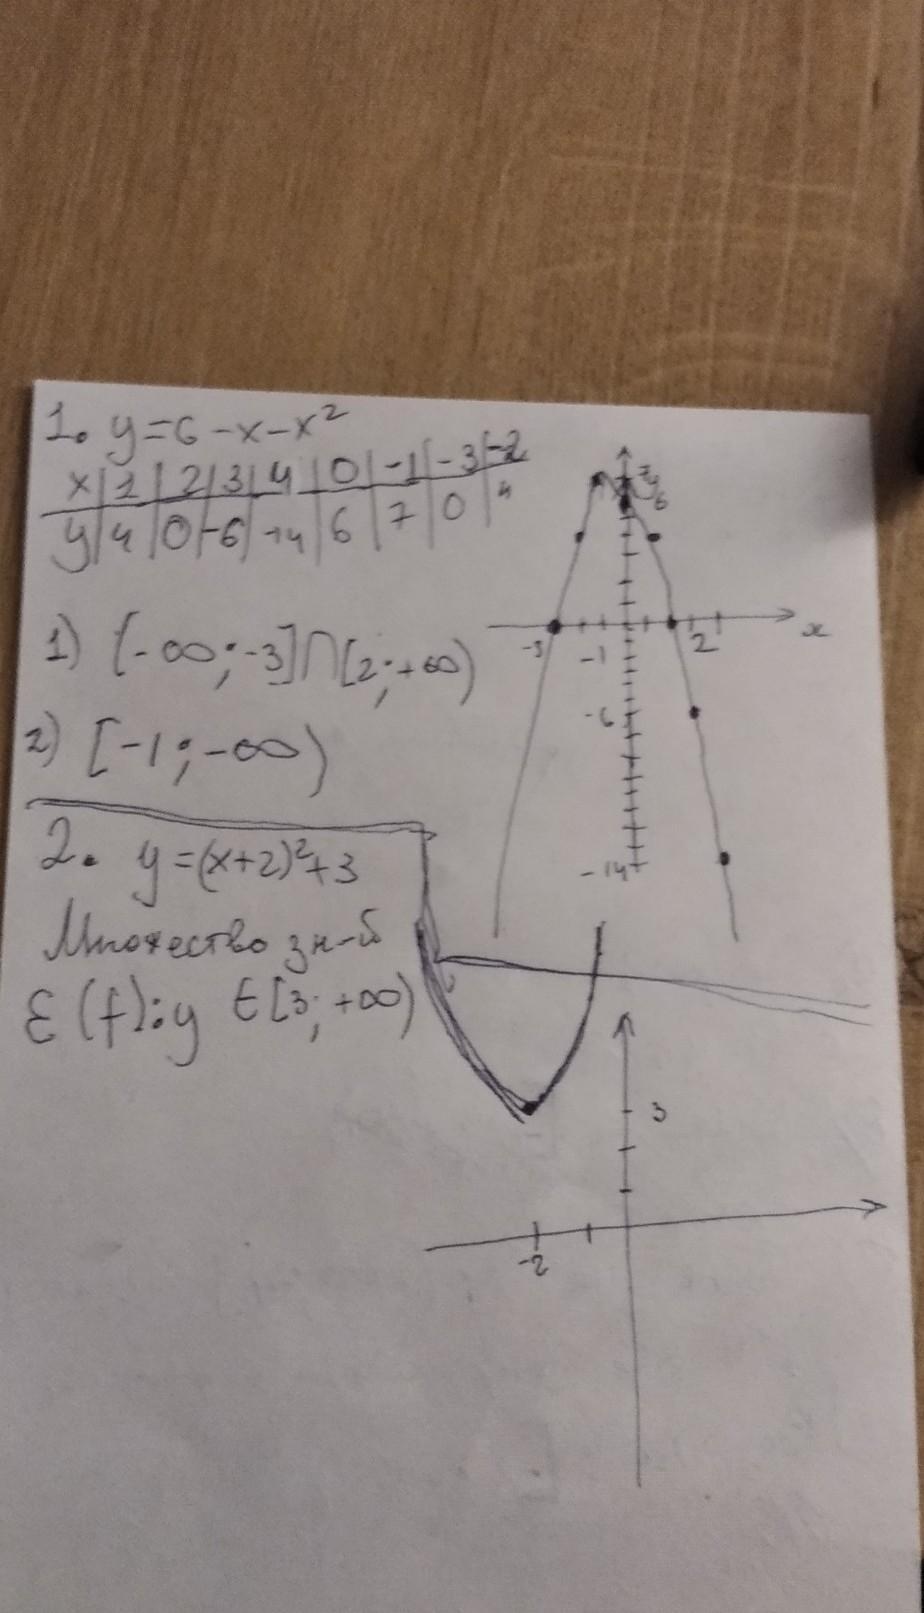 1. y=6-x-x²
x|1|2|3|4|0|-1|-3|-2
y|4|0|-6|-14|6|7|0|4
1) [-∞;-3]∩[2;+∞)
2) [-1;-∞)
6
-3
-1
2
x
-6
-14
2. y=(x+2)²+3
Множество зн-й
E(f):y ∈[3;+∞)
3
-2